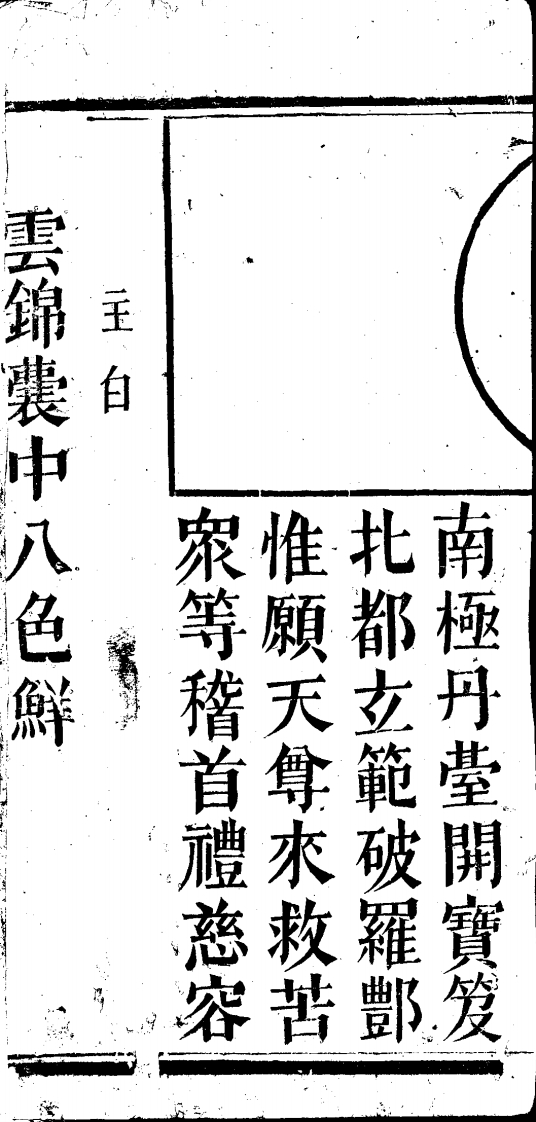 南極丹臺開寶笈
北都玄範破羅酆
惟願天尊來救苦
眾等稽首禮慈容
主白
雲錦囊中八色鮮